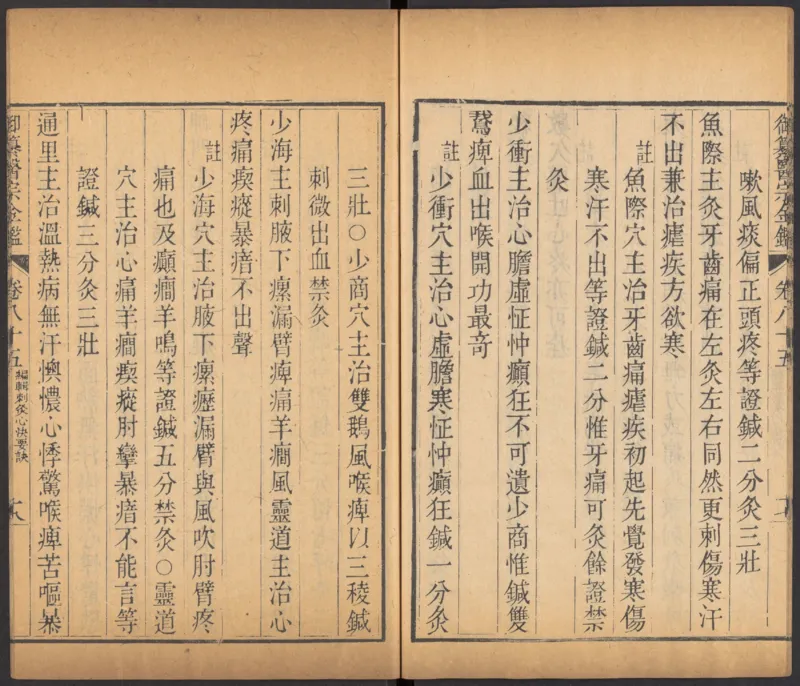 御纂醫宗金鑑 卷八十五
嗽風痰偏正頭疼等證鍼二分灸三壯
魚際主灸牙齒痛在左灸左右同然更刺傷寒汗
不出兼治瘧疾方欲寒
註 魚際穴主治牙齒痛瘧疾初起先覺發寒傷
寒汗不出等證鍼二分惟牙痛可灸餘證禁
灸
少衝主治心膽虛怔忡癲狂不可遺少商惟鍼雙
鵞痺血出喉開功最奇
註 少衝穴主治心虛膽寒怔忡癲狂鍼一分灸
三壯○少商穴主治雙鵝風喉痺以三稜鍼
刺微出血禁灸
少海主刺腋下瘰漏臂痺痛羊癎風靈道主治心
疼痛瘈瘲暴瘖不出聲
註 少海穴主治腋下瘰癧漏臂與風吹肘臂疼
痛也及癲癎羊鳴等證鍼五分禁灸○靈道
穴主治心痛羊癎瘈瘲肘攣暴瘖不能言等
證鍼三分灸三壯
通里主治溫熱病無汗懊憹心悸驚喉痺苦嘔暴
御纂醫宗金鑑 卷八十五 編輯刺灸心法要訣